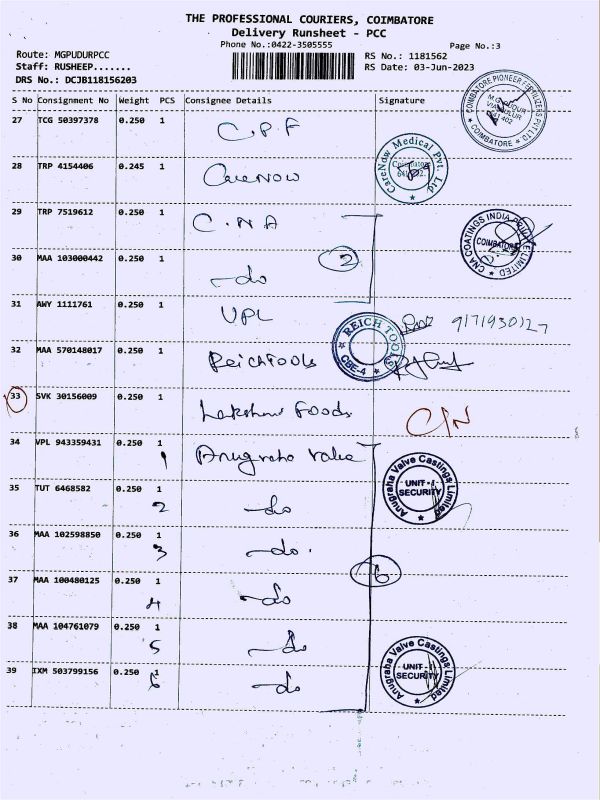 THE PROFESSIONAL COURIERS, COIMBATORE
Delivery Runsheet - PCC
Phone No.:0422-3505555
Page No.:3
Route: MGPUDURPCC
RS No.: 1181562
Staff: RUSHEEP.......
RS Date: 03-Jun-2023
DRS No.: DCJB118156203
S No Consignment No Weight PCS Consignee Details Signature
COIMBATORE PIONEER FERTILIZERS PVT LTD
641 402
COIMBATORE
27 TCG 50397378 0.250 1 C.P.F
28 TRP 4154406 0.245 1 CareNow
CareNow Medical Pvt. Ltd.
Coimbatore
29 TRP 7519612 0.250 1 C.NA
CNA COATINGS INDIA PRIVATE LIMITED
COIMBATORE
30 MAA 103000442 0.250 1 -do 2
31 AWY 1111761 0.250 1 UPL
32 MAA 570148017 0.250 1 ReichTools
REICH TOOLS
CBE-4
33 SVK 30156009 0.250 1 Lakshmi Foods C/N
34 VPL 943359431 0.250 1 1 Anugraha Valve
Anugraha Valve Castings Limited
UNIT - I
SECURITY
35 TUT 6468582 0.250 1 2 -do
36 MAA 102598850 0.250 1 3 -do.
6
37 MAA 100480125 0.250 1 4 -do
38 MAA 104761079 0.250 1 5 -do
39 IXM 503799156 0.250 1 6 -do
Anugraha Valve Castings Limited
UNIT - I
SECURITY